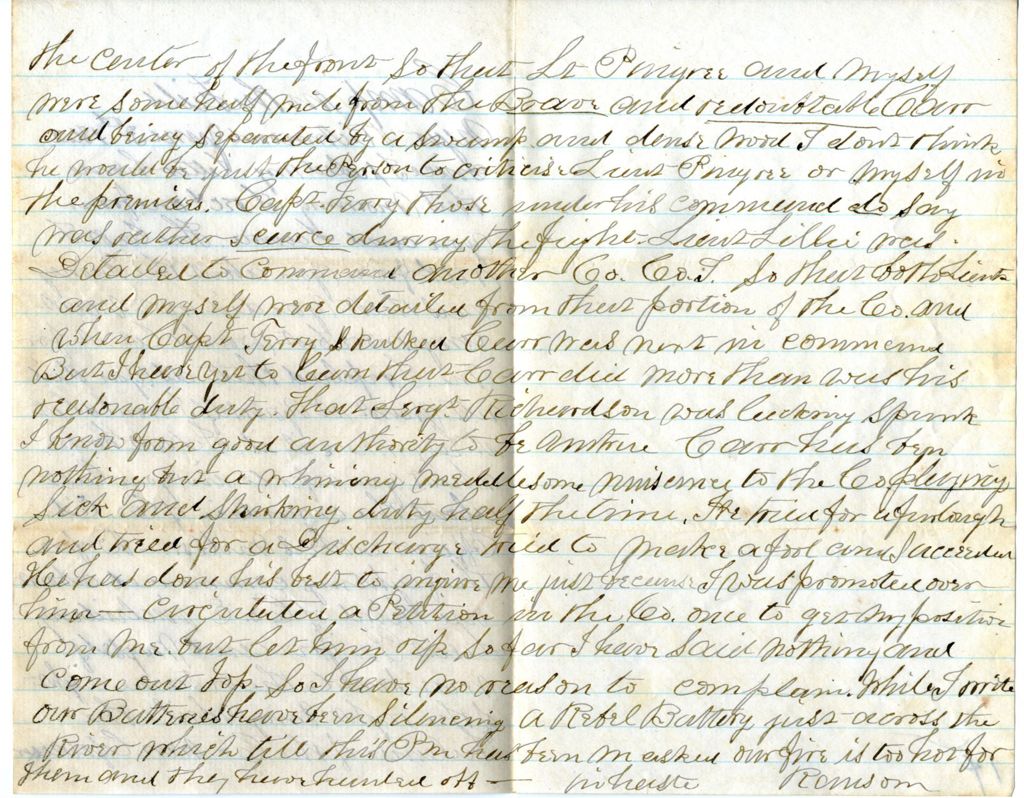 the center of the front So that Lt Pingree and Myself
were some half mile from the Brave and redoubtable Carr
and being separated by a swamp and dense wood I dont think
he would be just the Person to criticise Lieut Pingree or Myself in
the premises. Capt. Terry those under his command do say
was rather scarce during the fight. Lieut Lillie was
Detailed to Command another Co. Co. I. So that both Lieuts
and myself were detailed from that portion of the Co. and
when Capt Terry Skulked Carr was next in command
But I have yet to learn that Carr did more than was his
reasonable duty. That Sergt Richardson was lacking Spunk
I know from good authority to be untrue Carr has ben
nothing but a whining meddlesome nuisence to the Co playing
Sick and Shirking duty half the time. He tried for a furlough
and tried for a Discharge tried to make a fool and Succeeded
He has done his best to injure me just because I was promoted over
him — Circulated a Petition in the Co. once to get my position
from me. but let him rip So far I have Said nothing and
Come out top. So I have no reason to complain. While I write
our Batteries have been Silencing a Rebel Battery just across the
River which till this Pm has ben masked our fire is too hot for
them and they have hauled off — in haste Ransom